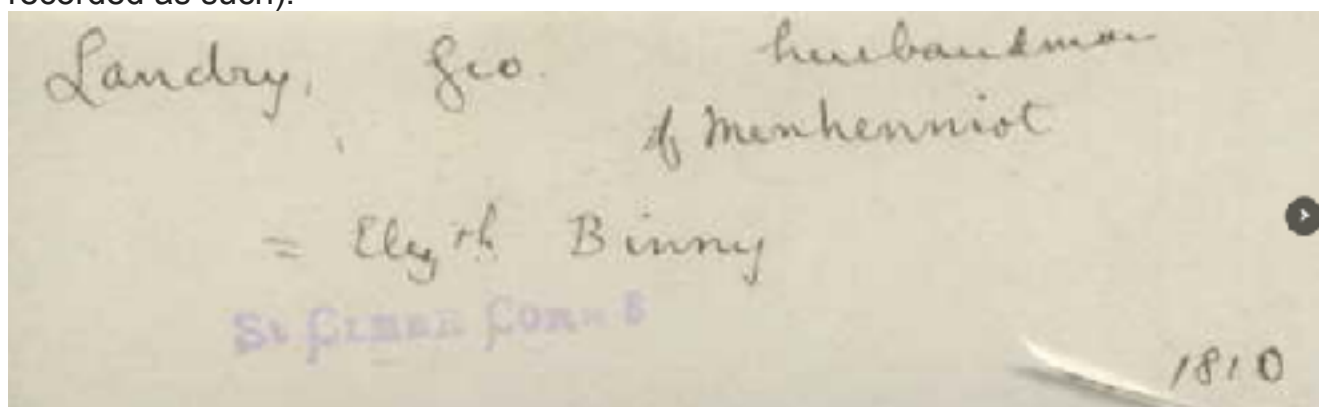 recorded as such).
Landry, Geo. husbandman
of Menhenniot
= Elizth Binny
St Cleer Corn
1810